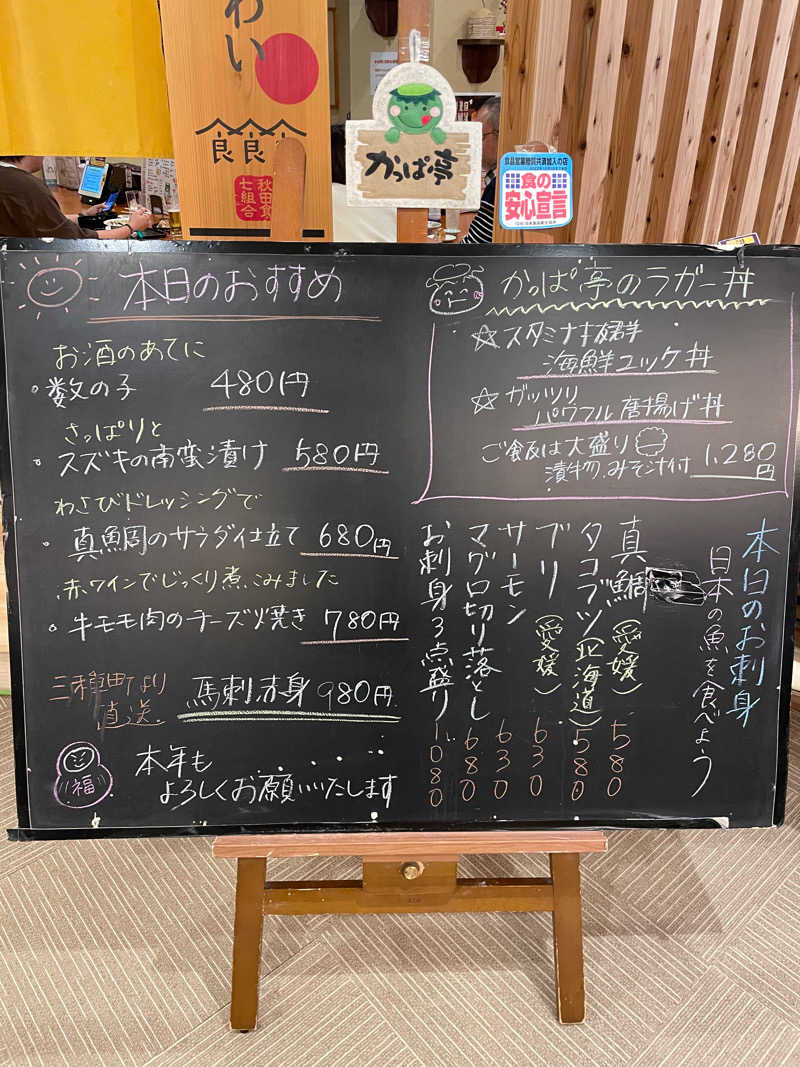 わい
食食
秋田食
七組合
かっぱ亭
食品営業賠償共済加入の店
食の
安心宣言
本日のおすすめ
お酒のあてに
数の子 480円
さっぱりと
スズキの南蛮漬け 580円
わさびドレッシングで
真鯛のサラダ仕立て 680円
赤ワインでじっくり煮こみました
牛モモ肉のチーズ焼き 780円
三種町より
直送
馬刺し赤身 980円
福
本年も
よろしくお願いいたします
かっぱ亭のラガー丼
☆スタミナ抜群
海鮮ユッケ丼
☆ガッツリ
パワフル唐揚げ丼
ご飯は大盛り
漬物、みそ汁付 1,280円
本日のお刺身
日本の魚を食べよう
真鯛(愛媛) 580
タコブツ(北海道) 580
ブリ(愛媛) 630
サーモン 630
マグロ切り落とし 680
お刺身3点盛り 1080